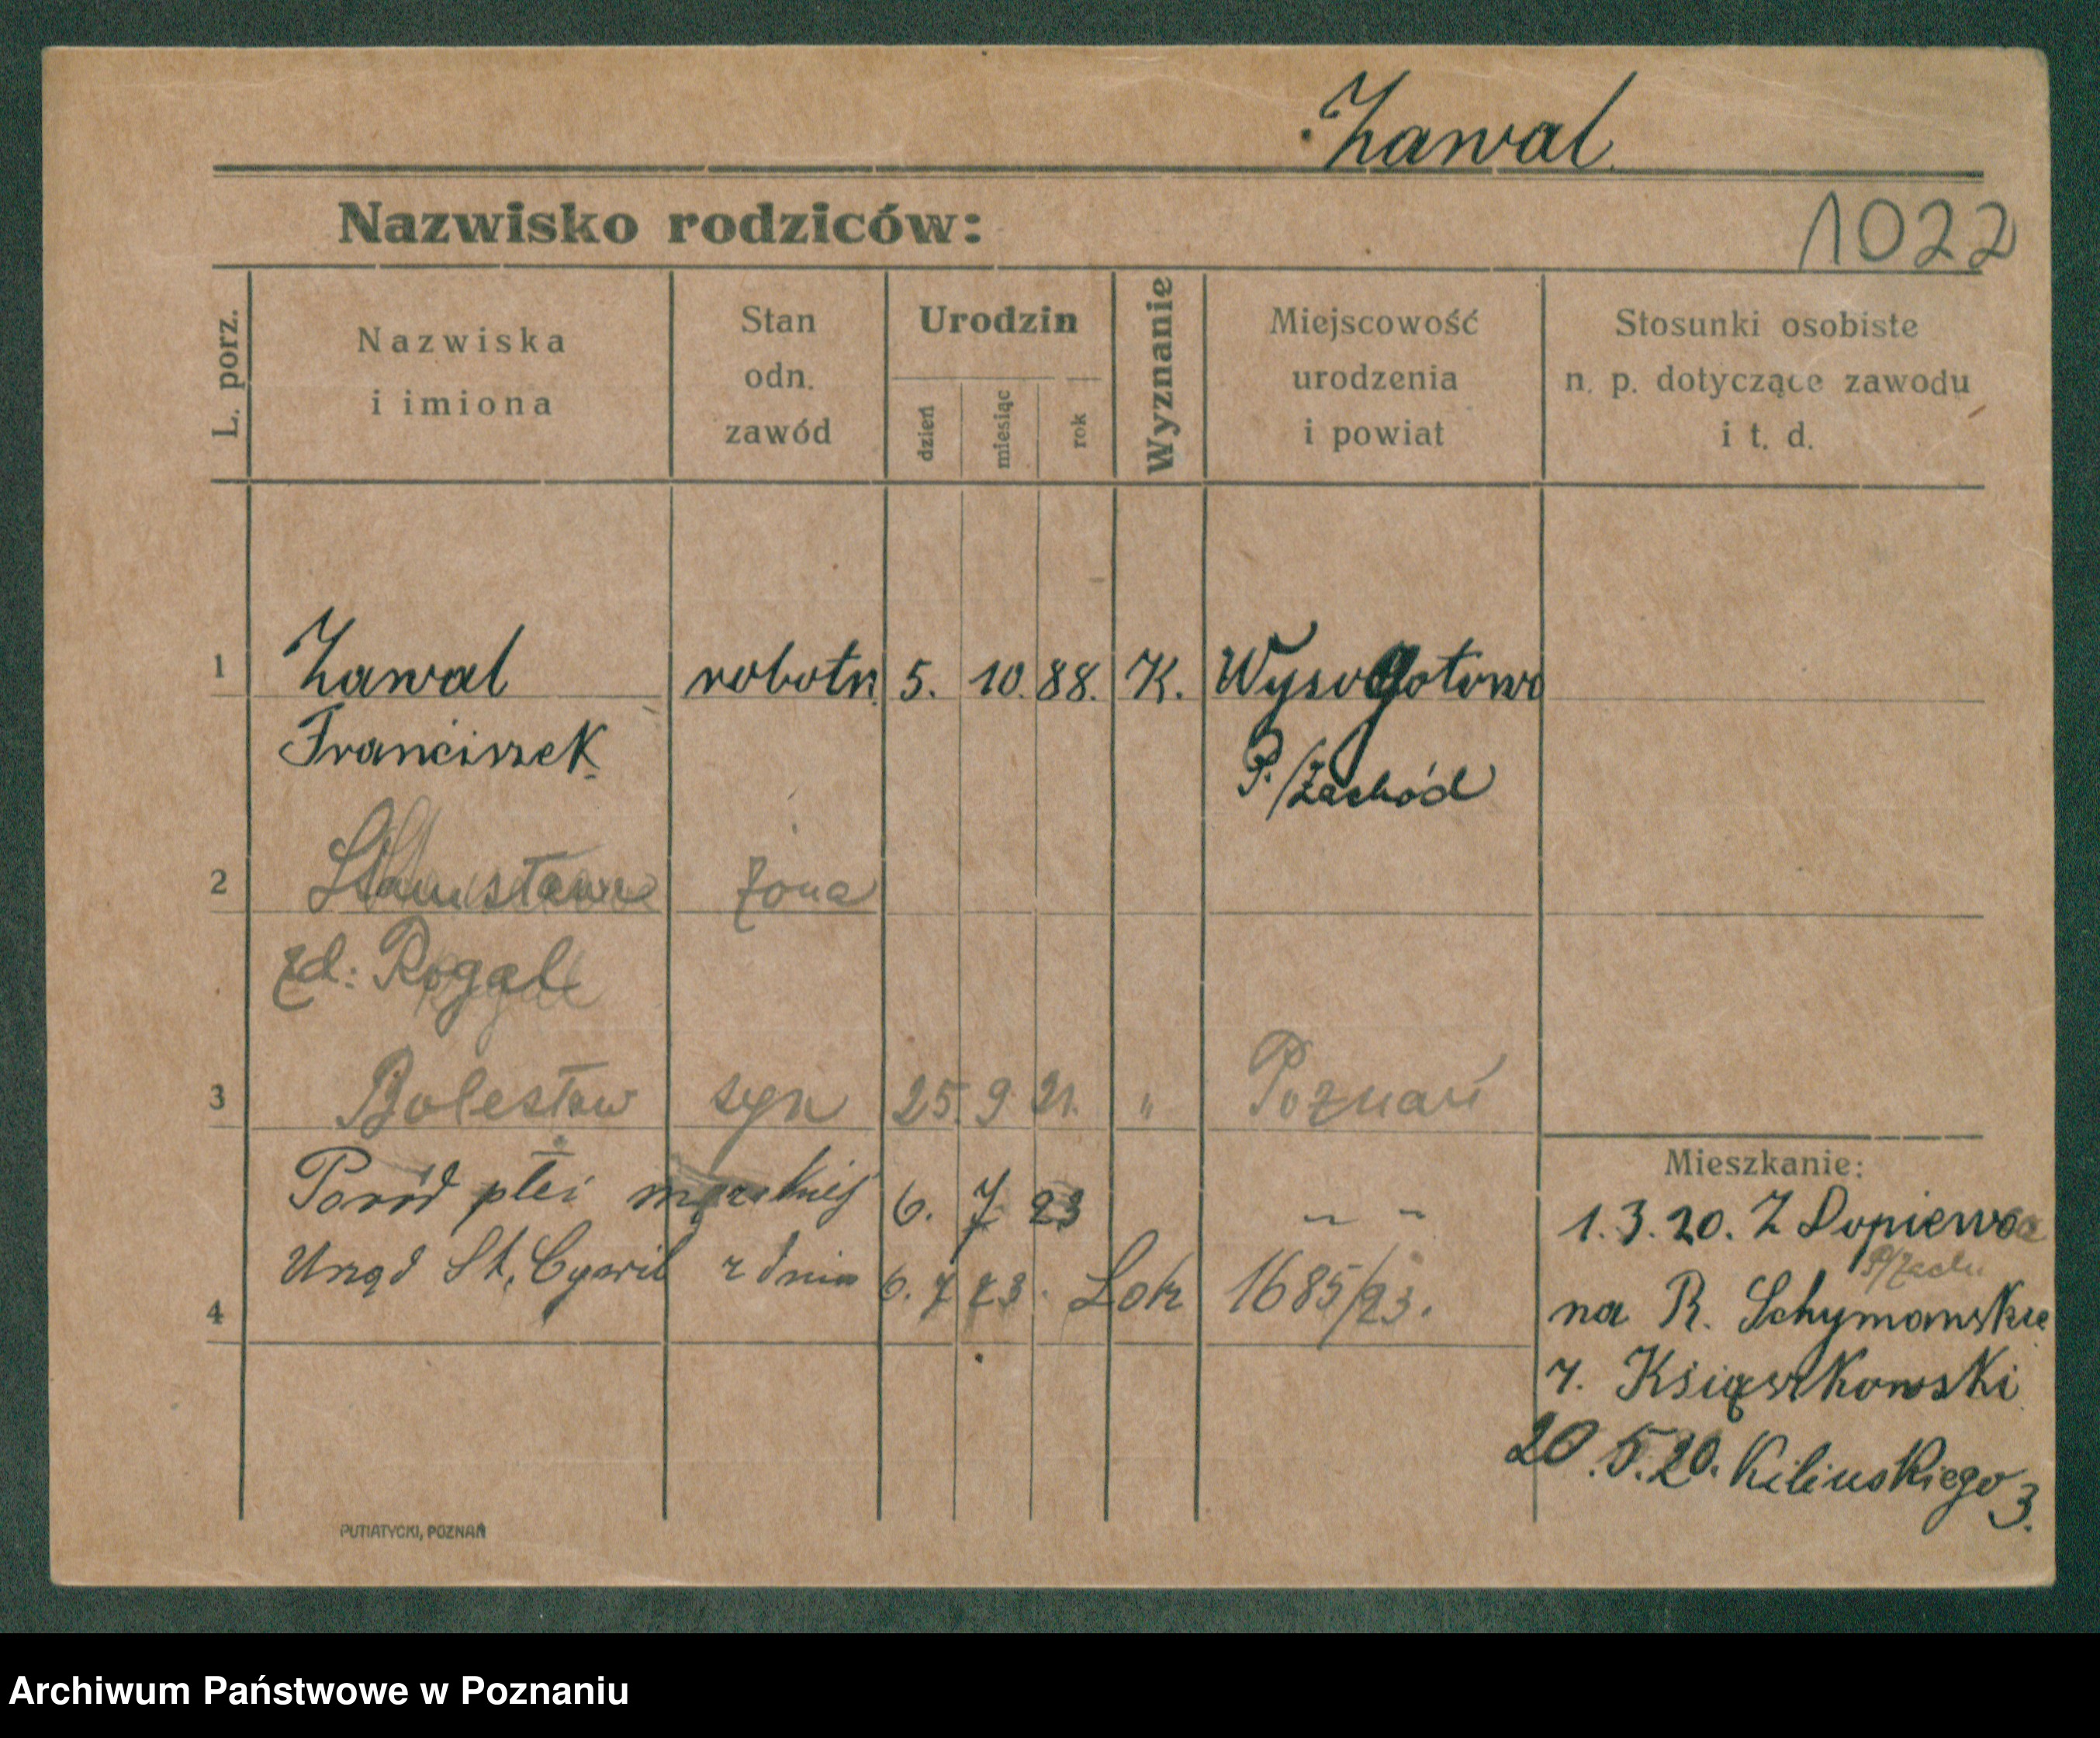 Zawal
Nazwisko rodziców:
1022
L. porz.
Nazwiska
i imiona
Stan
odn.
zawód
Urodzin
dzień
miesiąc
rok
Wyznanie
Miejscowość
urodzenia
i powiat
Stosunki osobiste
n. p. dotyczące zawodu
i t. d.
1 Zawal robotn. 5. 10. 88. K. Wysogotowo
Franciszek P./Zachód
2 Stanisława żona
zd: Rogal
3 Bolesław syn 25. 9. 21. " Poznań
Poród płci męzskiej 6. 7 23 " "
Urząd St. Cywil z dnia 6. 7 23. 1685/23.
4
Mieszkanie:
1.3.20. Z Dopiewca
P/Zach.
na R. Schymanskie
20.5.20. Kilinskiego 3.
PUTIATYCKI, POZNAŃ
Archiwum Państwowe w Poznaniu